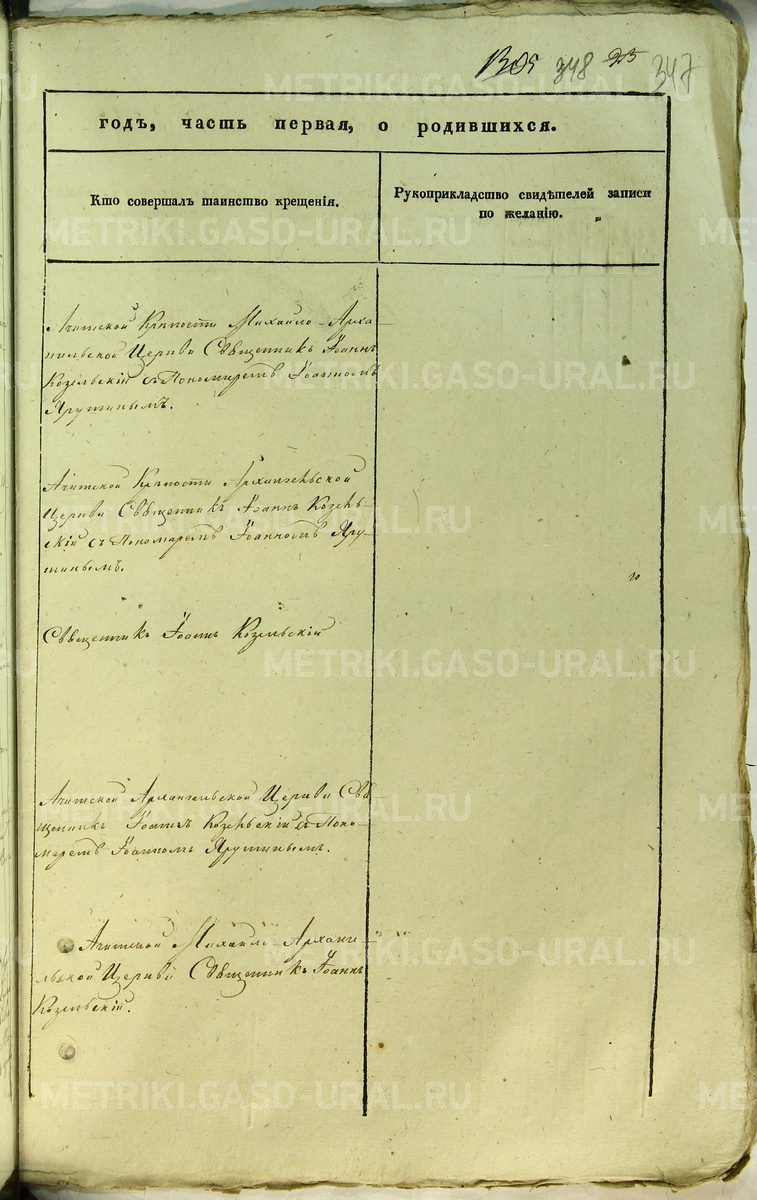 348 347
годъ, часть первая, о родившихся.
Кто совершалъ таинство крещенія.
Рукоприкладство свидѣтелей записи
по желанію.
METRIKI.GASO-URAL.RU
Ачитской Крѣпости Михайло-Арха-
нгельской Церкви Священникъ Іоаннъ
Козельскій съ Пономаремъ Іоанномъ
Яругинымъ.
Ачитской Крѣпости Архангельской
Церкви Священникъ Іоаннъ Козель-
скій съ Пономаремъ Іоанномъ Яру-
гинымъ.
Священникъ Іоаннъ Козельскій
Ачитской Архангельской Церкви Свя-
щенникъ Іоаннъ Козельскій съ Поно-
маремъ Іоанномъ Яругинымъ.
Ачитской Михайло-Арханге-
льской Церкви Священникъ Іоаннъ
Козельскій.